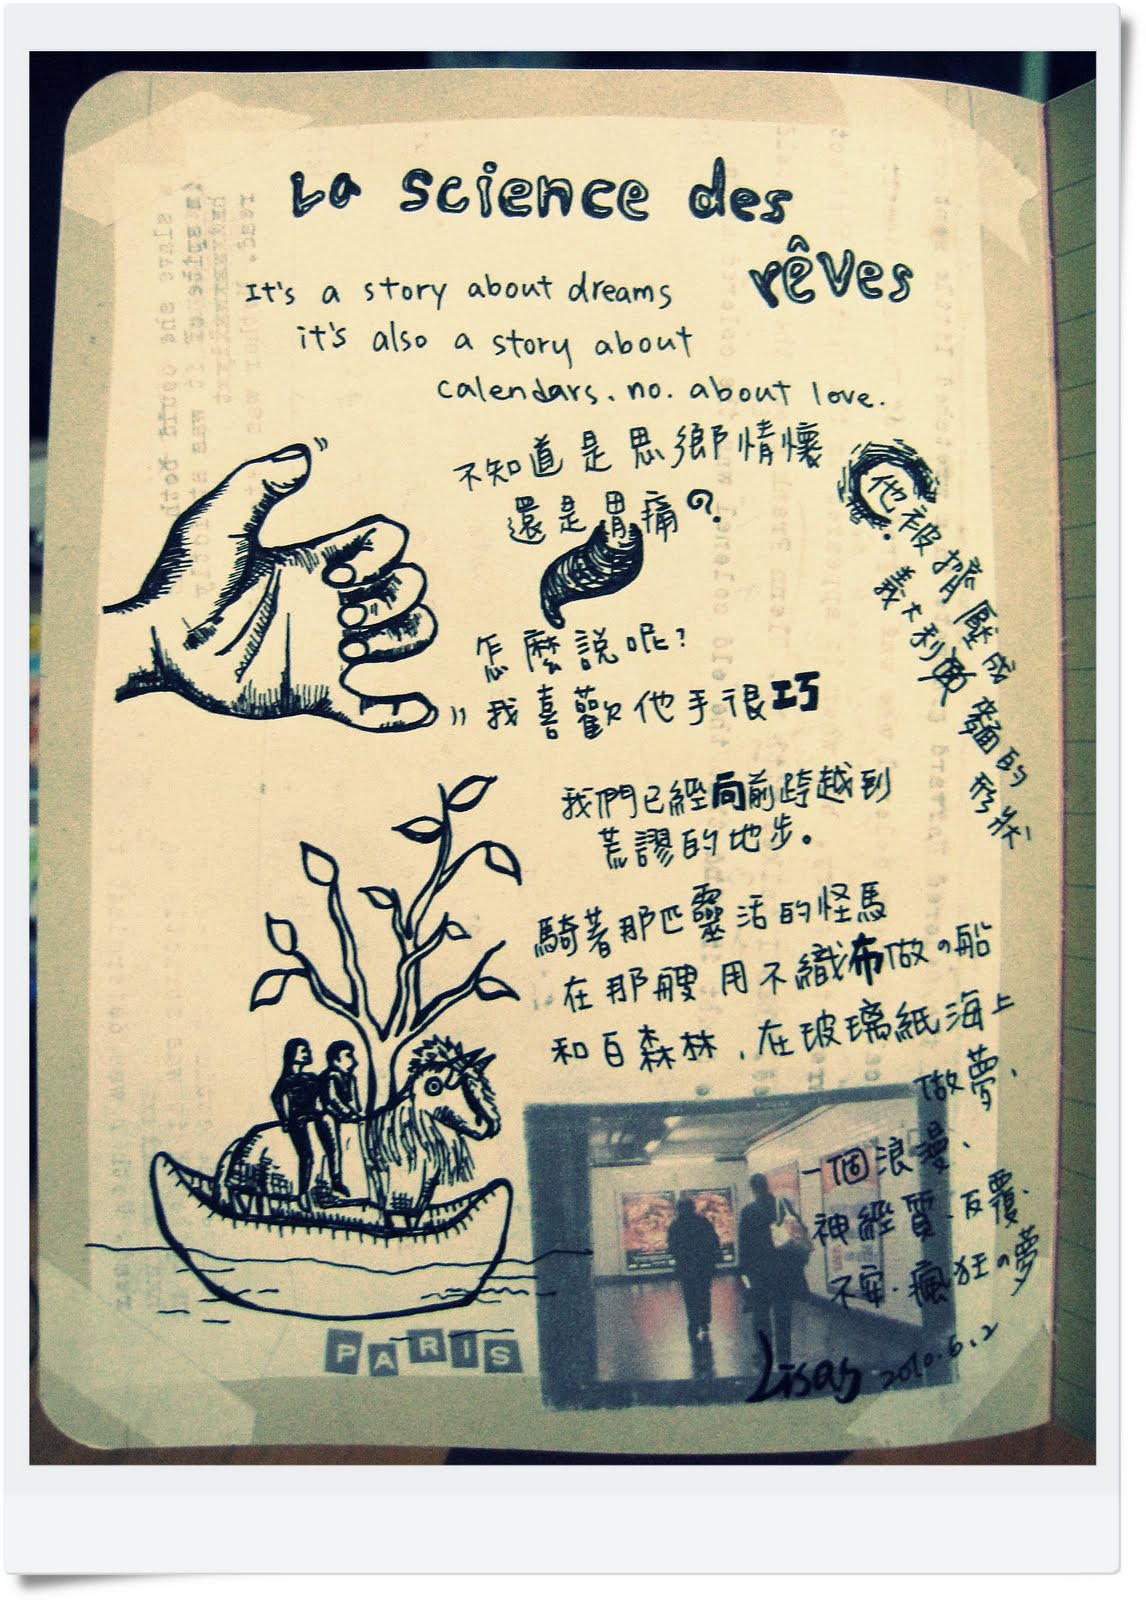 La science des
rêves
It's a story about dreams
it's also a story about
calendars. no. about love.
不知道是思鄉情懷
還是胃痛?
他被擠壓成義大利麵的形狀
怎麼說呢?
我喜歡他手很巧
我們已經向前跨越到
荒謬的地步。
騎著那匹靈活的怪馬
在那艘用不織布做の船
和白森林,在玻璃紙海上
做夢、
一個浪漫、
神經質、反覆、
不安、瘋狂の夢
PARIS
Lisas 2010.6.2